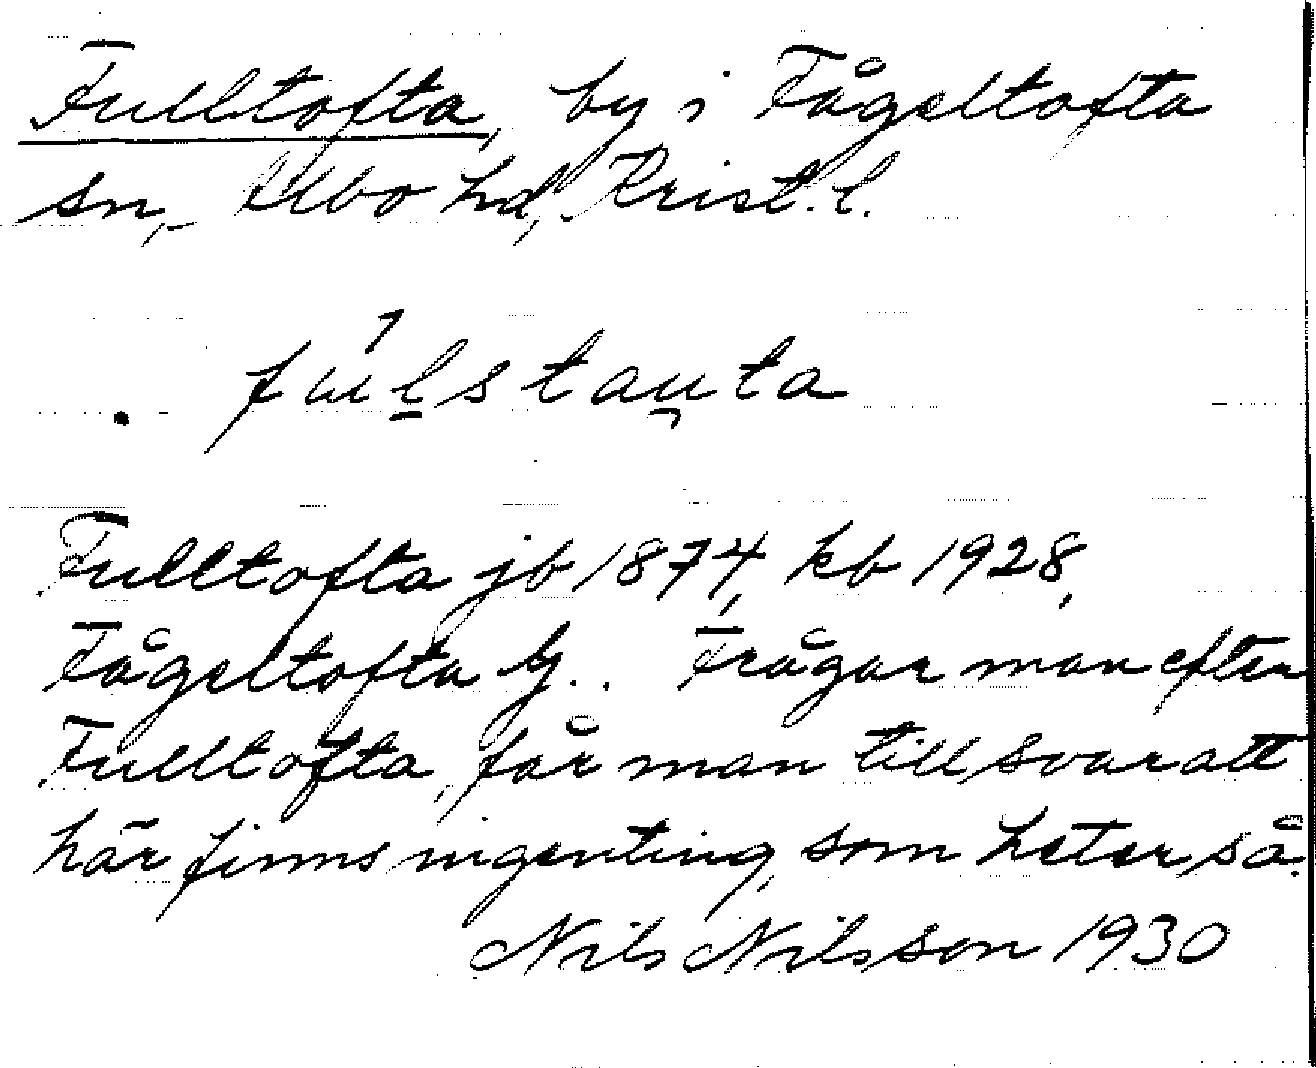 Fulltofta, by i Fågeltofta
sn, Albo hd, Krist. l.
fúlstau̯ta
Fulltofta jb 1874, kb 1928,
Fågeltofta by. Frågar man efter
Fulltofta, får man till svar att
här finns ingenting, som heter så.
Nils Nilsson 1930